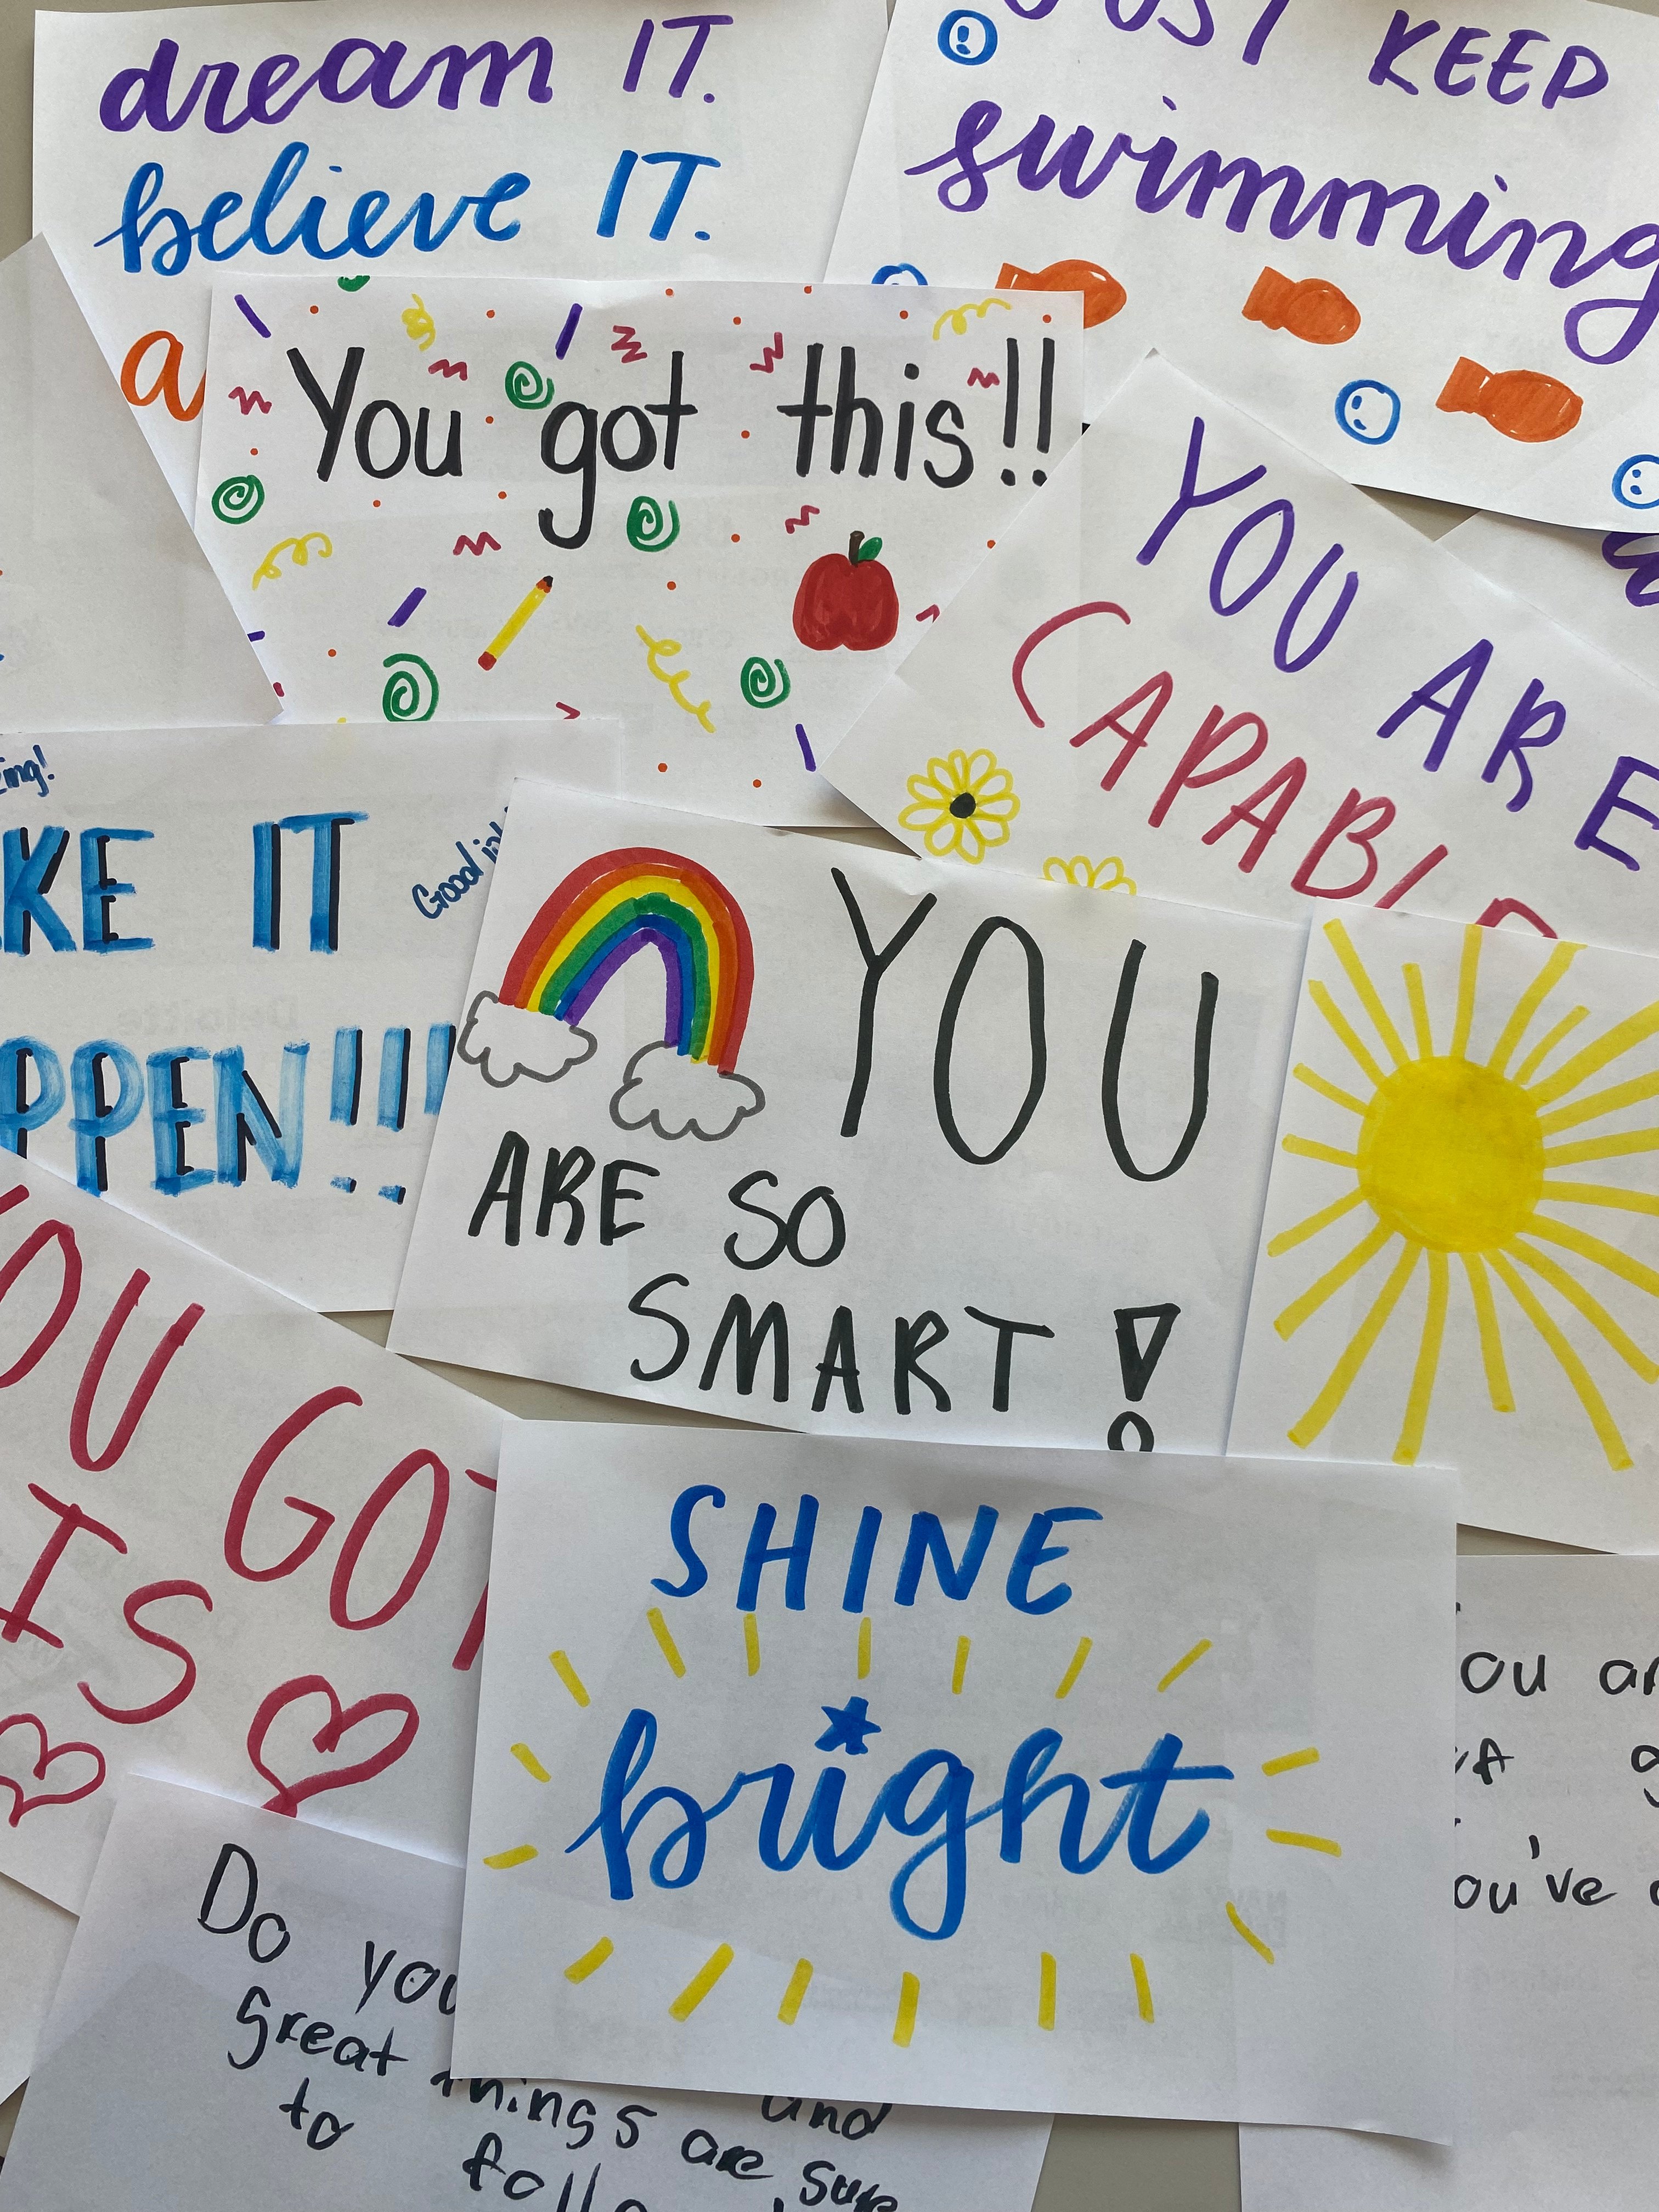 dream IT.
believe IT.
a
JUST KEEP
swimming
You got this!!
YOU ARE
CAPABLE
KE IT
Good
PPEN!!!
YOU
ARE SO
SMART!
OU GOT
IS
SHINE
bright
ou ar
ou've
Do you
great things are sure
and
to follo